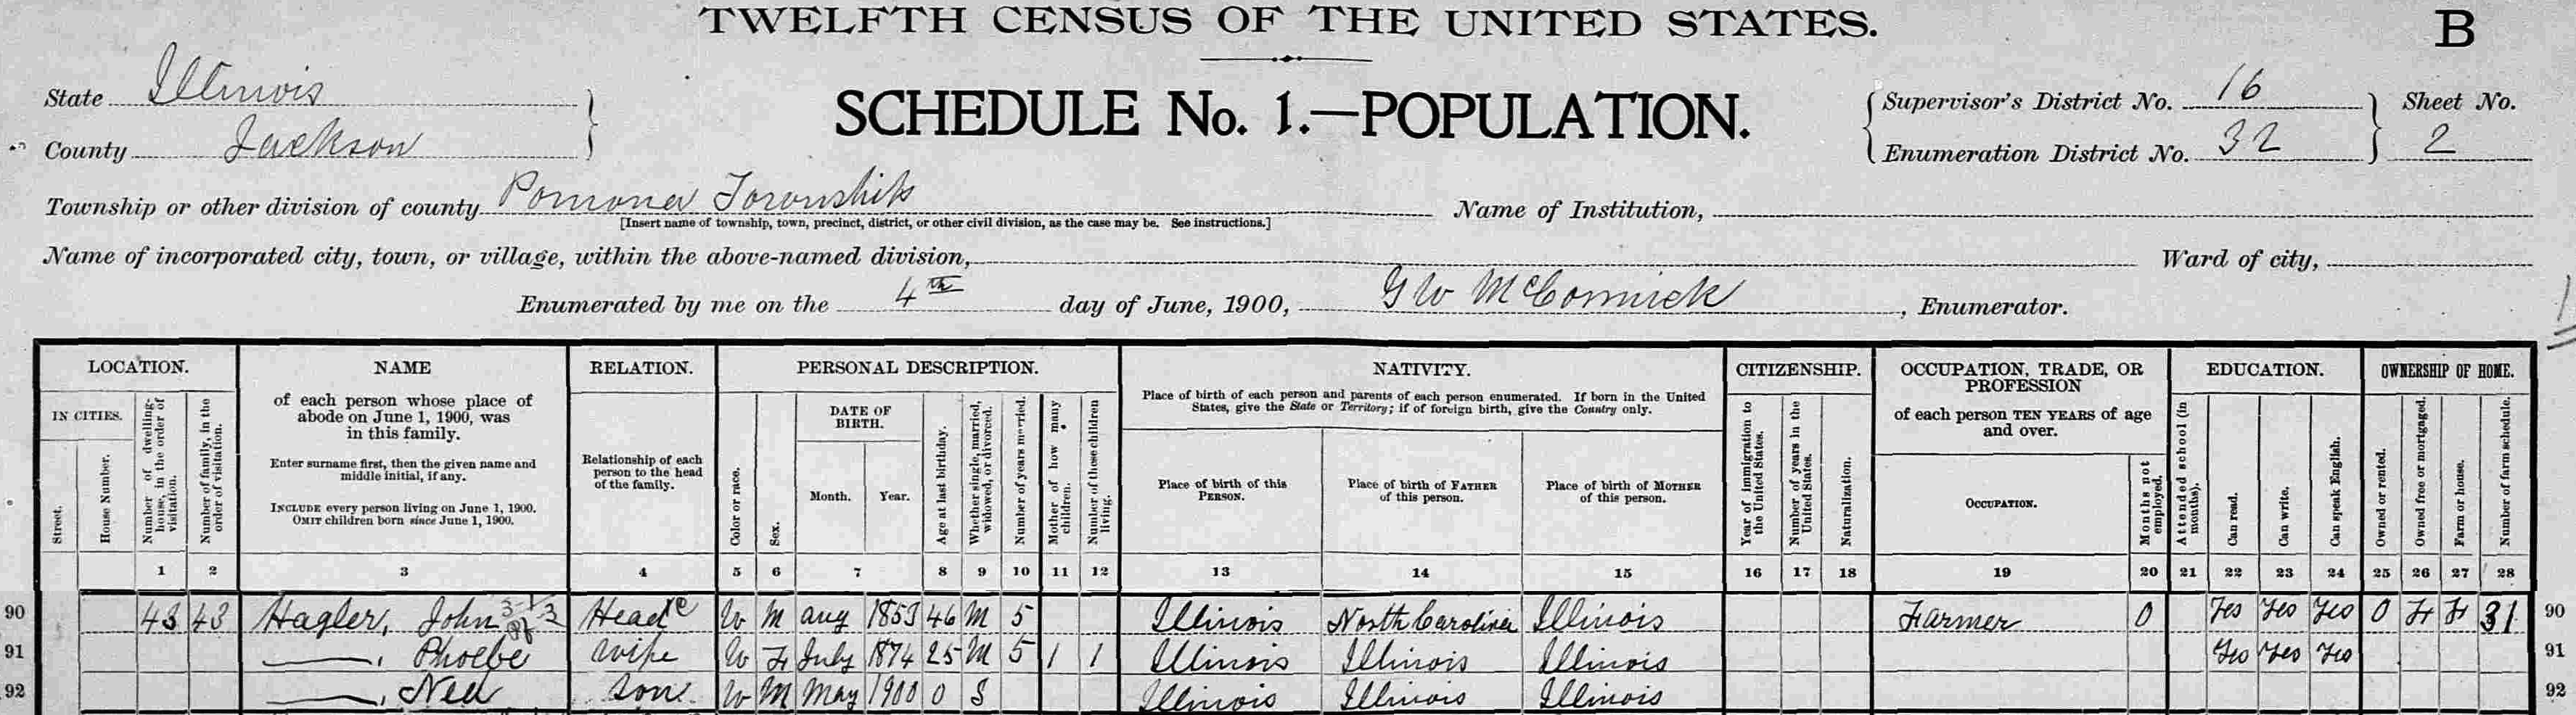 TWELFTH CENSUS OF THE UNITED STATES.
B
State Illinois
County Jackson
SCHEDULE No. 1.—POPULATION.
Supervisor's District No. 16
Enumeration District No. 32
Sheet No.
2
Township or other division of county Pomona Township
[Insert name of township, town, precinct, district, or other civil division, as the case may be. See instructions.]
Name of Institution,
Name of incorporated city, town, or village, within the above-named division,
Ward of city,
Enumerated by me on the 4th day of June, 1900, G W McCormick, Enumerator.
LOCATION.
IN CITIES.
Street.
House Number.
Number of dwelling-house, in the order of visitation.
Number of family, in the order of visitation.
NAME
of each person whose place of
abode on June 1, 1900, was
in this family.
Enter surname first, then the given name and
middle initial, if any.
INCLUDE every person living on June 1, 1900.
OMIT children born since June 1, 1900.
RELATION.
Relationship of each
person to the head
of the family.
PERSONAL DESCRIPTION.
Color or race.
Sex.
DATE OF
BIRTH.
Month.
Year.
Age at last birthday.
Whether single, married, widowed, or divorced.
Number of years married.
Mother of how many children.
Number of these children living.
NATIVITY.
Place of birth of each person and parents of each person enumerated. If born in the United
States, give the State or Territory; if of foreign birth, give the Country only.
Place of birth of this
PERSON.
Place of birth of FATHER
of this person.
Place of birth of MOTHER
of this person.
CITIZENSHIP.
Year of immigration to the United States.
Number of years in the United States.
Naturalization.
OCCUPATION, TRADE, OR
PROFESSION
of each person TEN YEARS of age
and over.
OCCUPATION.
Months not employed.
EDUCATION.
Attended school (in months).
Can read.
Can write.
Can speak English.
OWNERSHIP OF HOME.
Owned or rented.
Owned free or mortgaged.
Farm or house.
Number of farm schedule.
1 2 3 4 5 6 7 8 9 10 11 12 13 14 15 16 17 18 19 20 21 22 23 24 25 26 27 28
90 43 43 Hagler, John Head W M Aug 1853 46 M 5 Illinois North Carolina Illinois Farmer 0 Yes Yes Yes O F F 31 90
91 ——, Phoebe Wife W F July 1874 25 M 5 1 1 Illinois Illinois Illinois Yes Yes Yes 91
92 ——, Ned Son W M May 1900 0 S Illinois Illinois Illinois 92